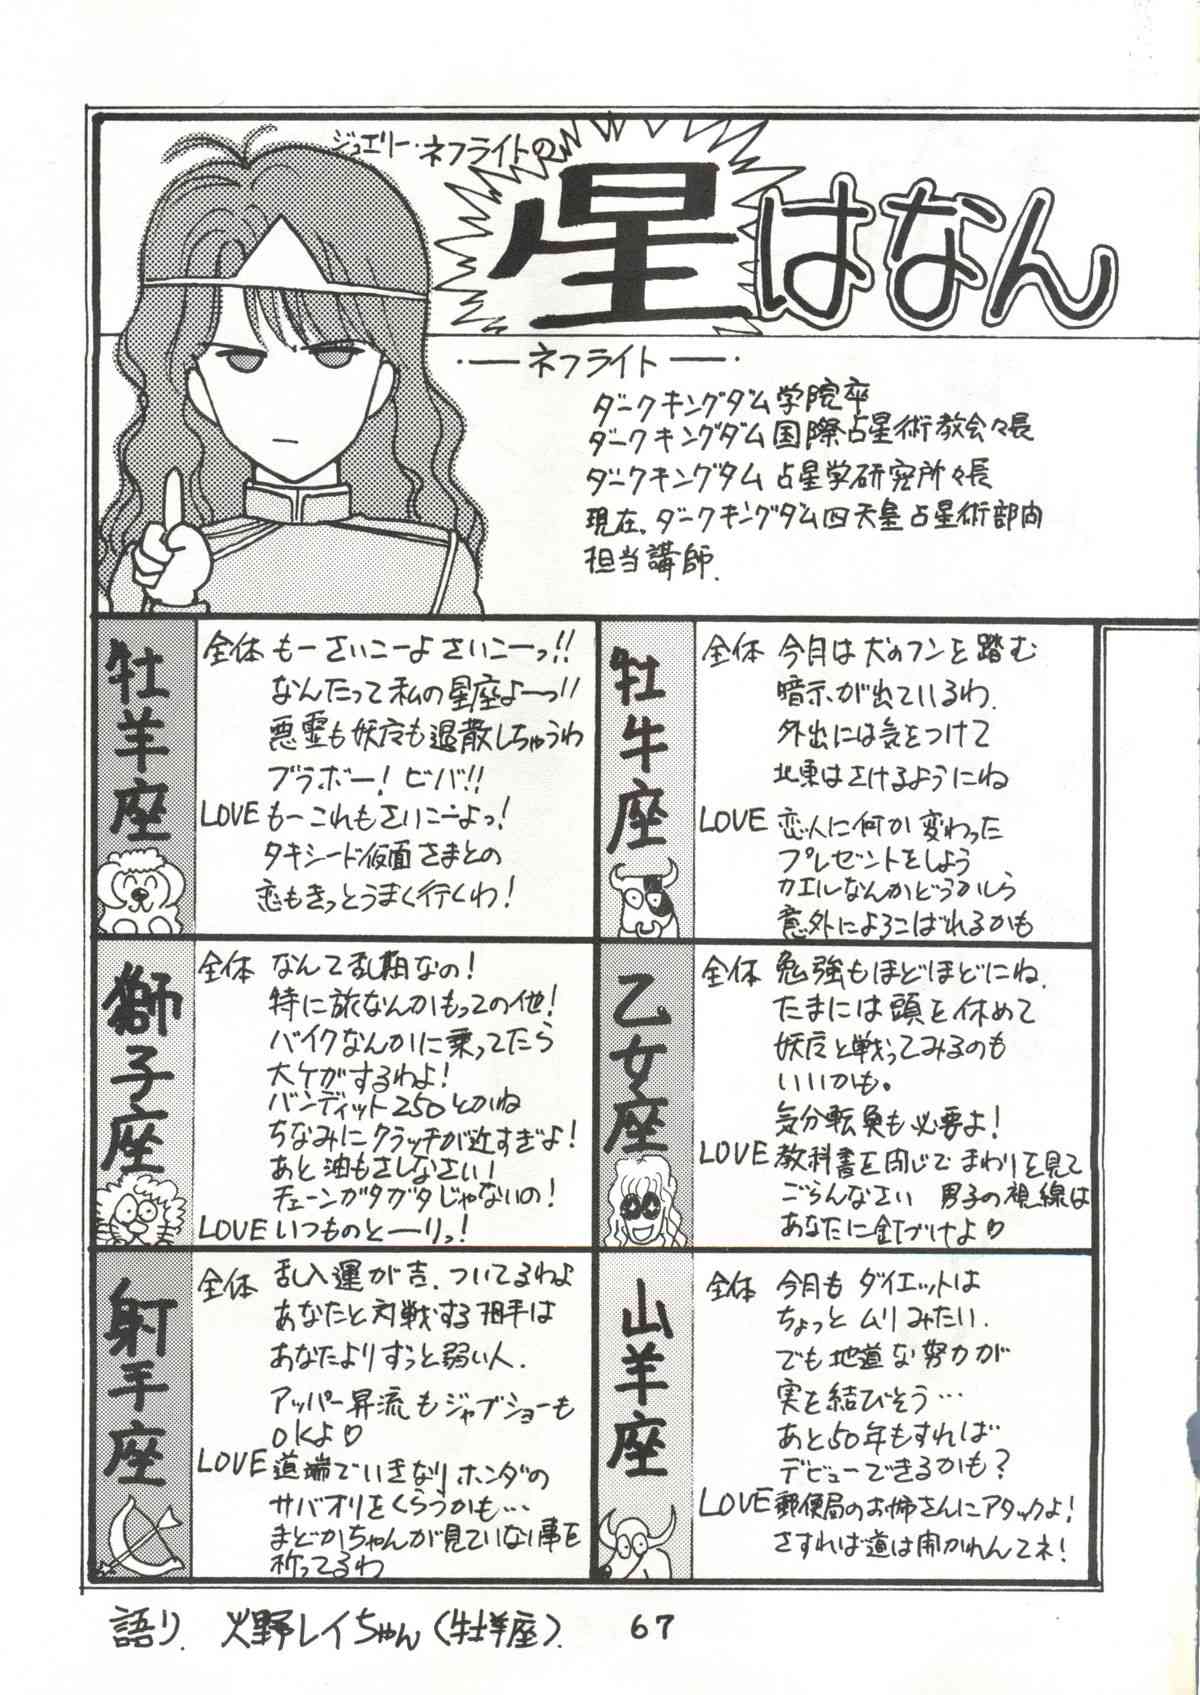 ジュエリー・ネフライトの
星はなん
・―ネフライト―・
ダークキングダム学院卒
ダークキングダム国際占星術教会々長
ダークキングダム占星学研究所々長
現在、ダークキングダム四天皇占星術部内
担当講師.
牡羊座
全体 もーさいこーよ さいこーっ!!
なんたって私の星座よーっ!!
悪霊も妖魔も退散しちゃうわ
ブラボー!ビバ!!
LOVE もーこれもさいこーよっ!
タキシード仮面さまとの
恋もきっとうまく行くわ!
牡牛座
全体 今月は犬のフンを踏む
暗示が出ているわ.
外出には気をつけて
北東はさけるようにね
LOVE 恋人に何か変わった
プレゼントをしよう
カエルなんかどうかしら
意外によろこばれるかも
獅子座
全体 なんて乱期なの!
特に旅なんかもっての他!
バイクなんかに乗ってたら
大ケガするわよ!
バンディット250とかね
ちなみにクラッチが近すぎよ!
あと油もさしなさい!
チェーンがタガタじゃないの!
LOVE いつものとーりっ!
乙女座
全体 勉強もほどほどにね.
たまには頭を休めて
妖魔と戦ってみるのも
いいかも。
気分転負も必要よ!
LOVE 教科書を閉じてまわりを見て
ごらんなさい 男子の視線は
あなたに釘づけよ♡
射手座
全体 乱入運が吉.ついてるわよ
あなたと対戦する相手は
あなたよりずっと弱い人.
アッパー昇流もジャブショーも
OKよ♡
LOVE 道端でいきなりホンダの
サバオリをくらうかも…
まどかちゃんが見ていない事を
祈ってるわ
山羊座
全体 今月もダイエットは
ちょっとムリみたい.
でも地道な努力が
実を結びそう…
あと50年もすれば
デビューできるかも?
LOVE 郵便局のお姉さんにアタックよ!
さすれば道は開かれんてネ!
語り. 火野レイちゃん(牡羊座).
67